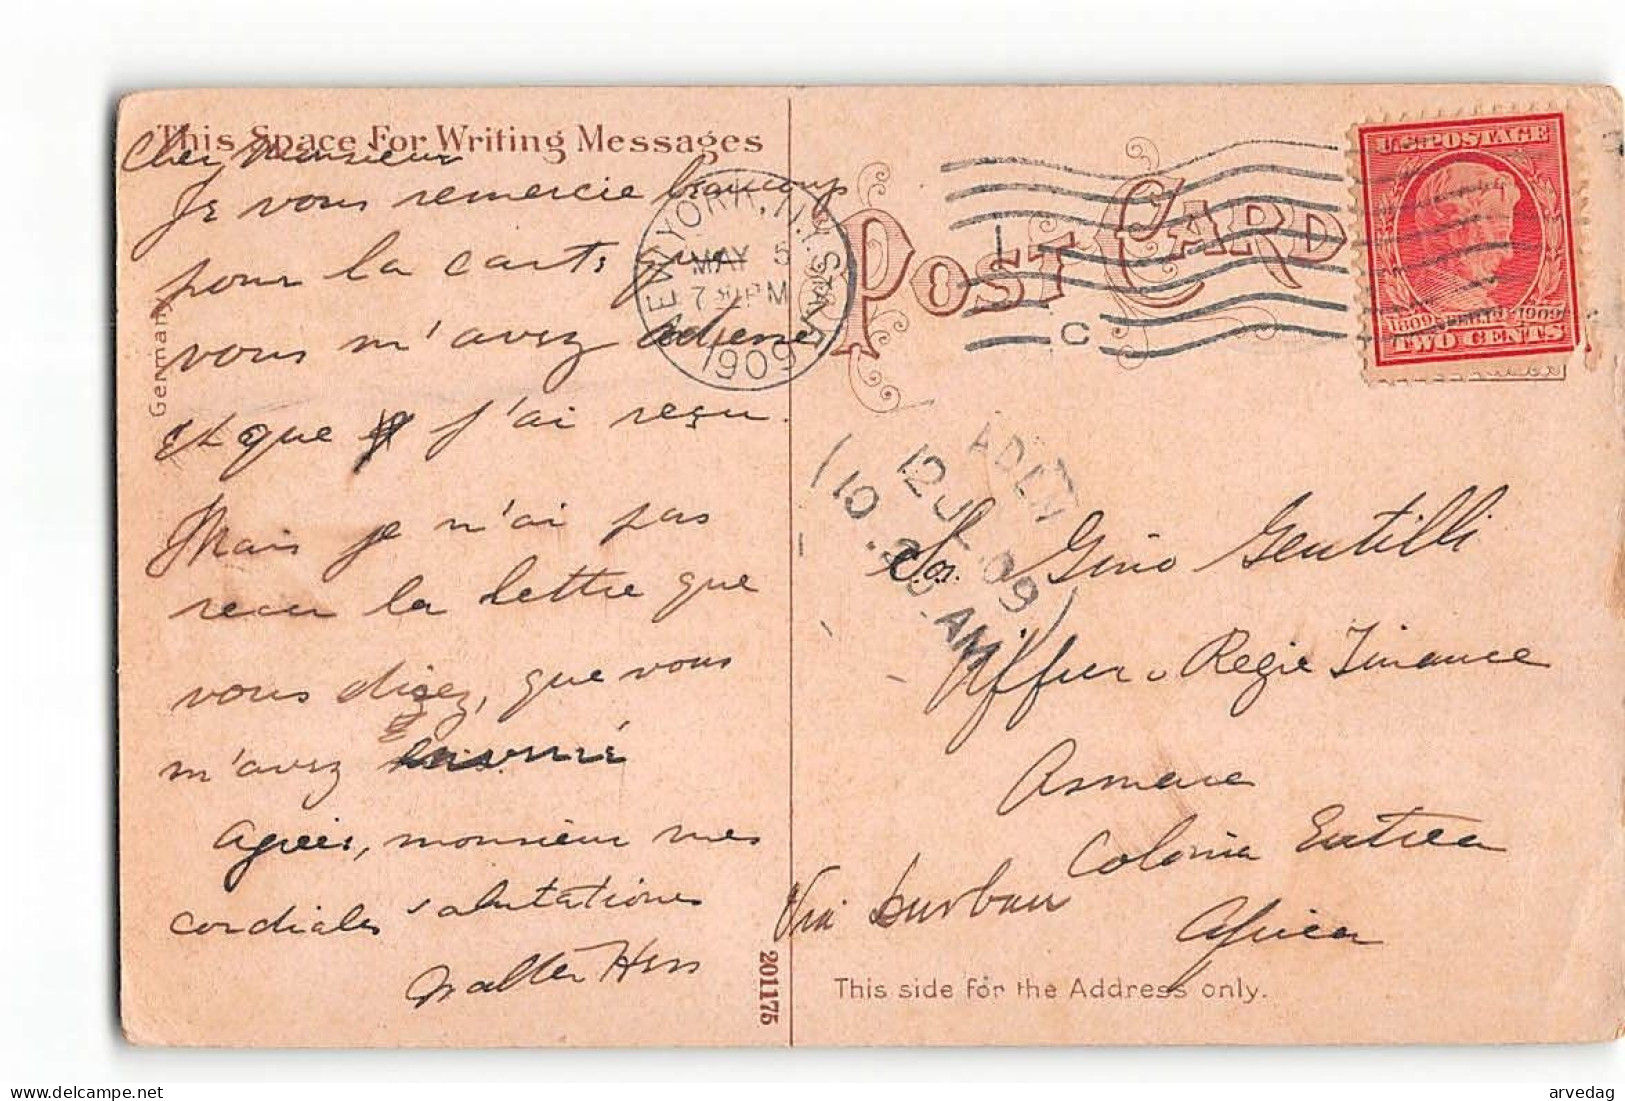 This Space For Writing Messages
Cher Monsieur
Je vous remercie beaucoup
pour la carte que
vous m'avez
et que j'ai reçu.
Mais je n'ai pas
recu la lettre que
vous dizez, que vous
m'avez
agréer, monsieur mes
cordiales salutations
Walter Hess
Germany
201175
NEW YORK, N.Y. STA.
MAY 5
7 30 PM
1909
POST CARD
L
C
U.S. POSTAGE
1809 FEB. 12 1909
TWO CENTS
ADEN
12 JUL 09
10. AM
Sr. Gino Gentilli
Regie Finance
Asmara
Colonia Eritrea
Africa
Via Durban
This side for the Address only.
arvedag